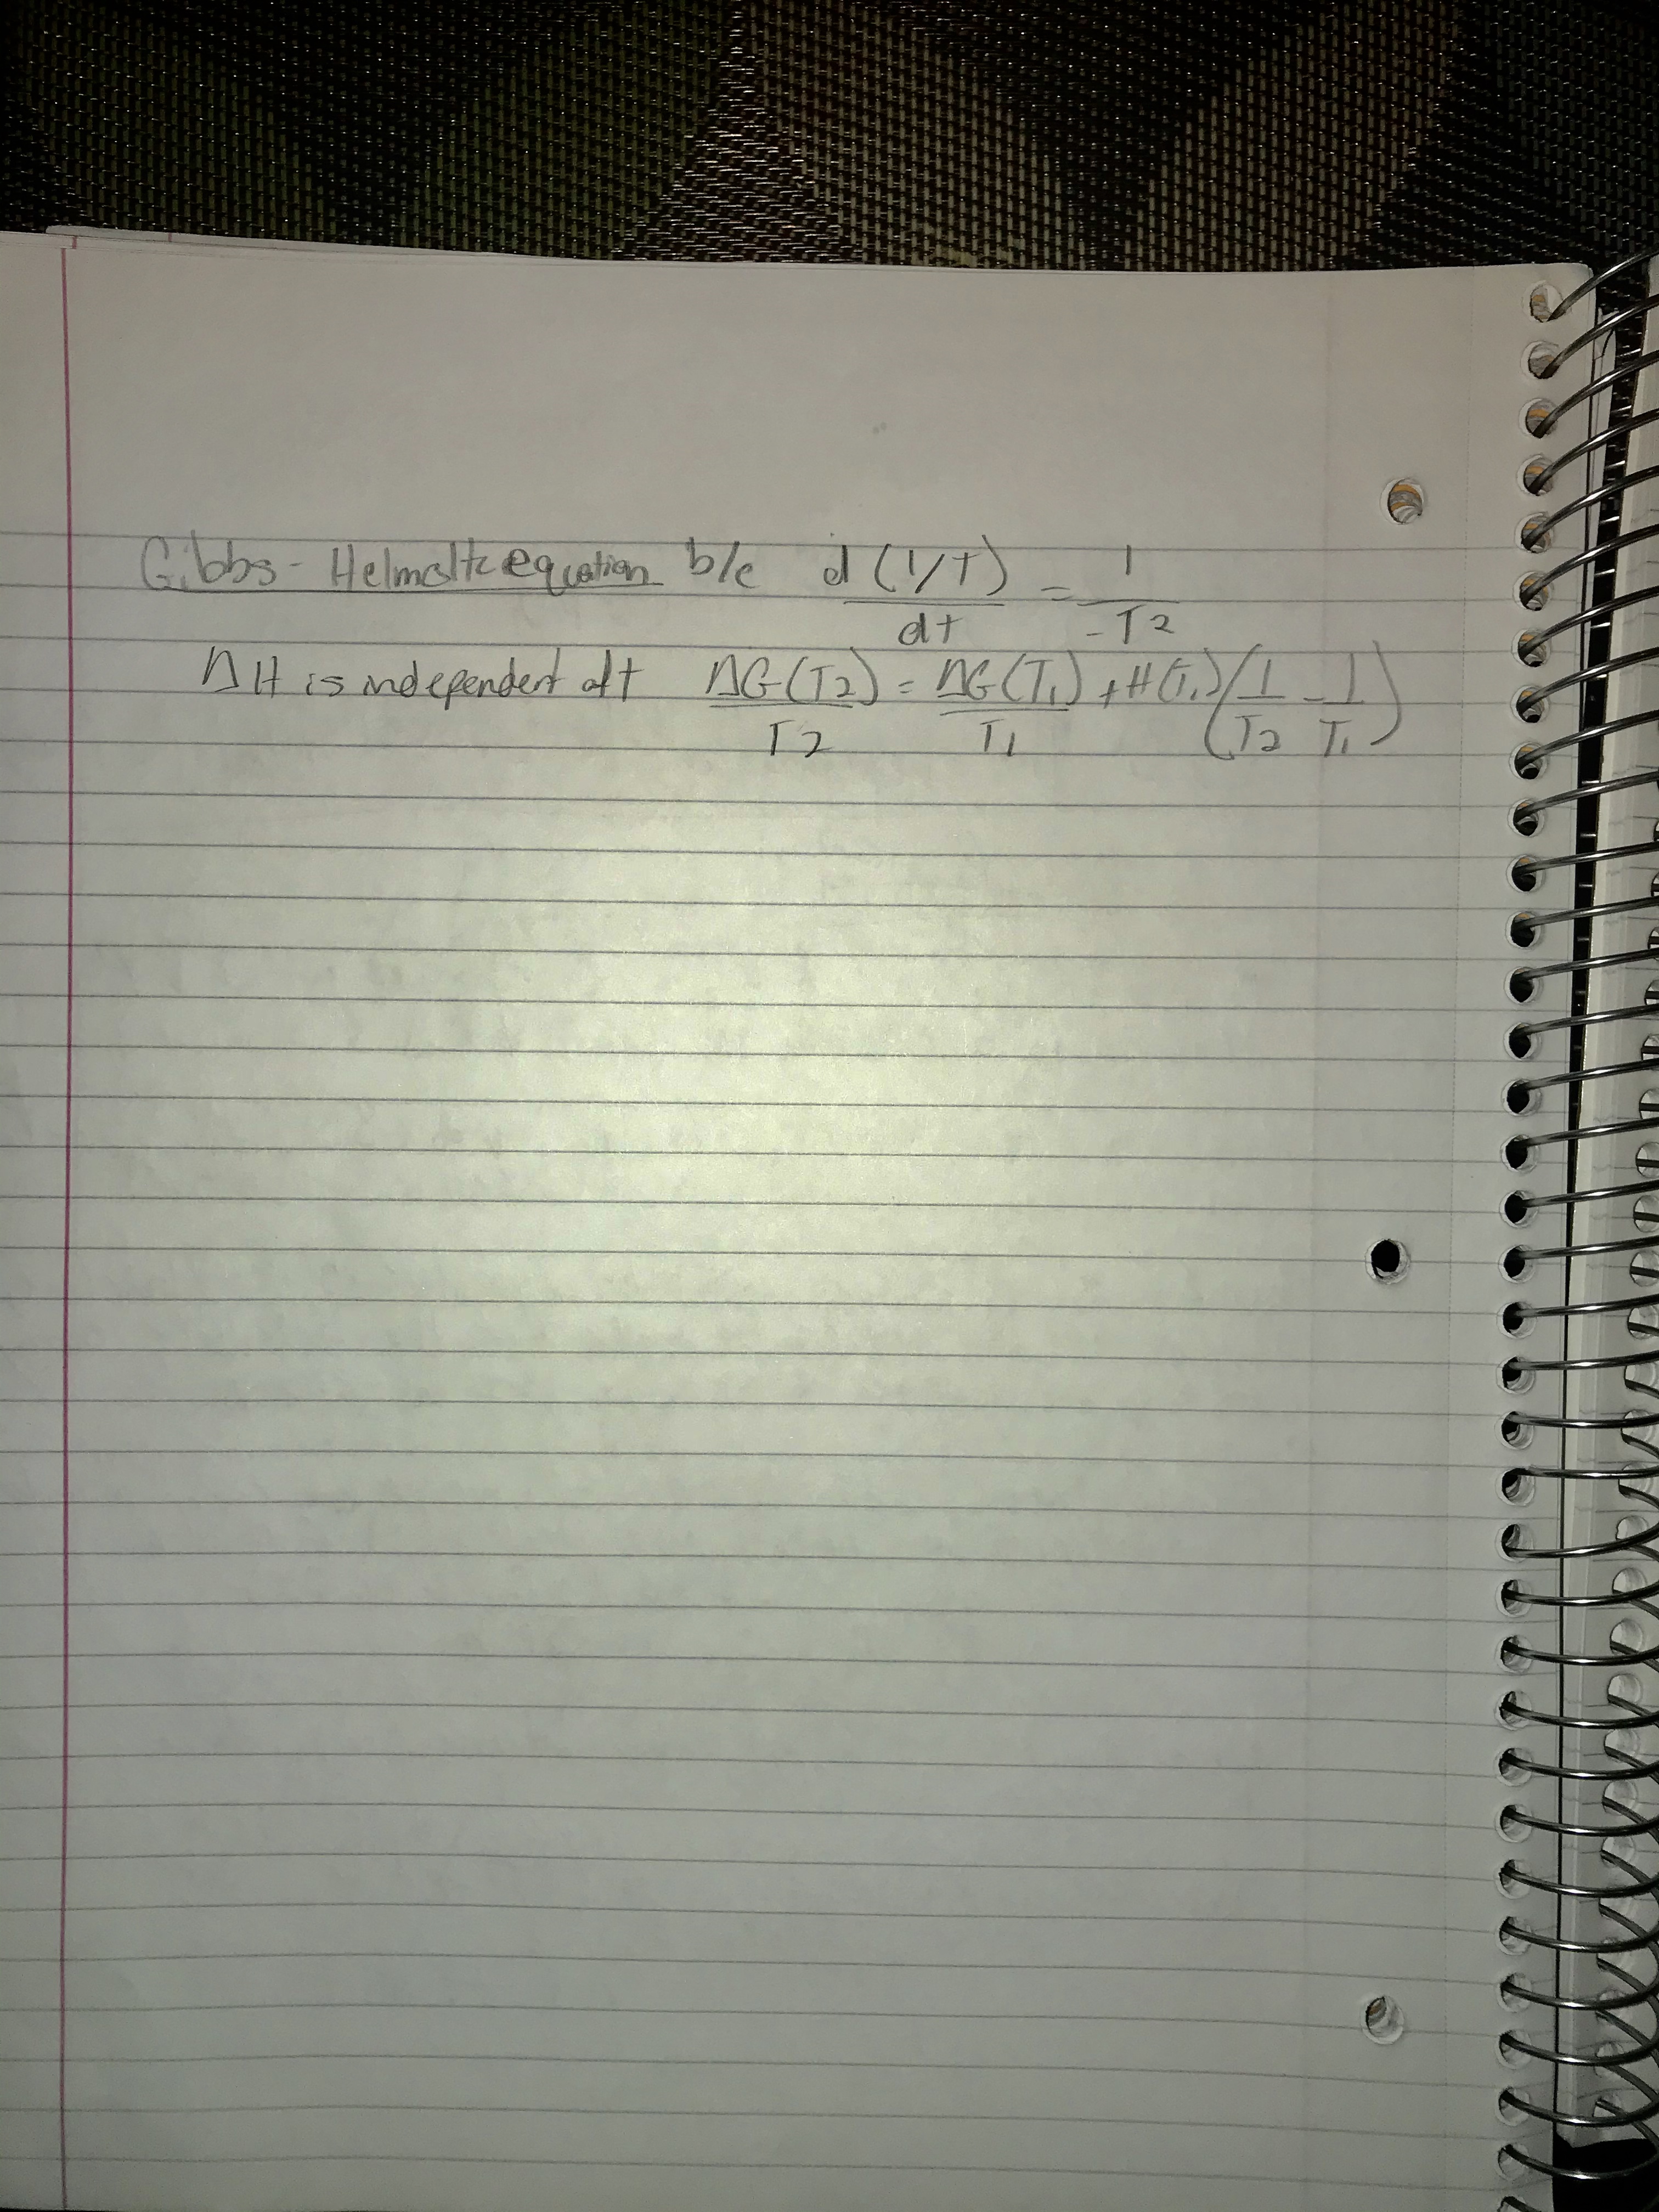 Gibbs - Helmoltz equation b/c d(1/T)/dt = 1/-T2
ΔH is independent of t ΔG(T2)/T2 = ΔG(T1)/T1 + H(T1)(1/T2 - 1/T1)